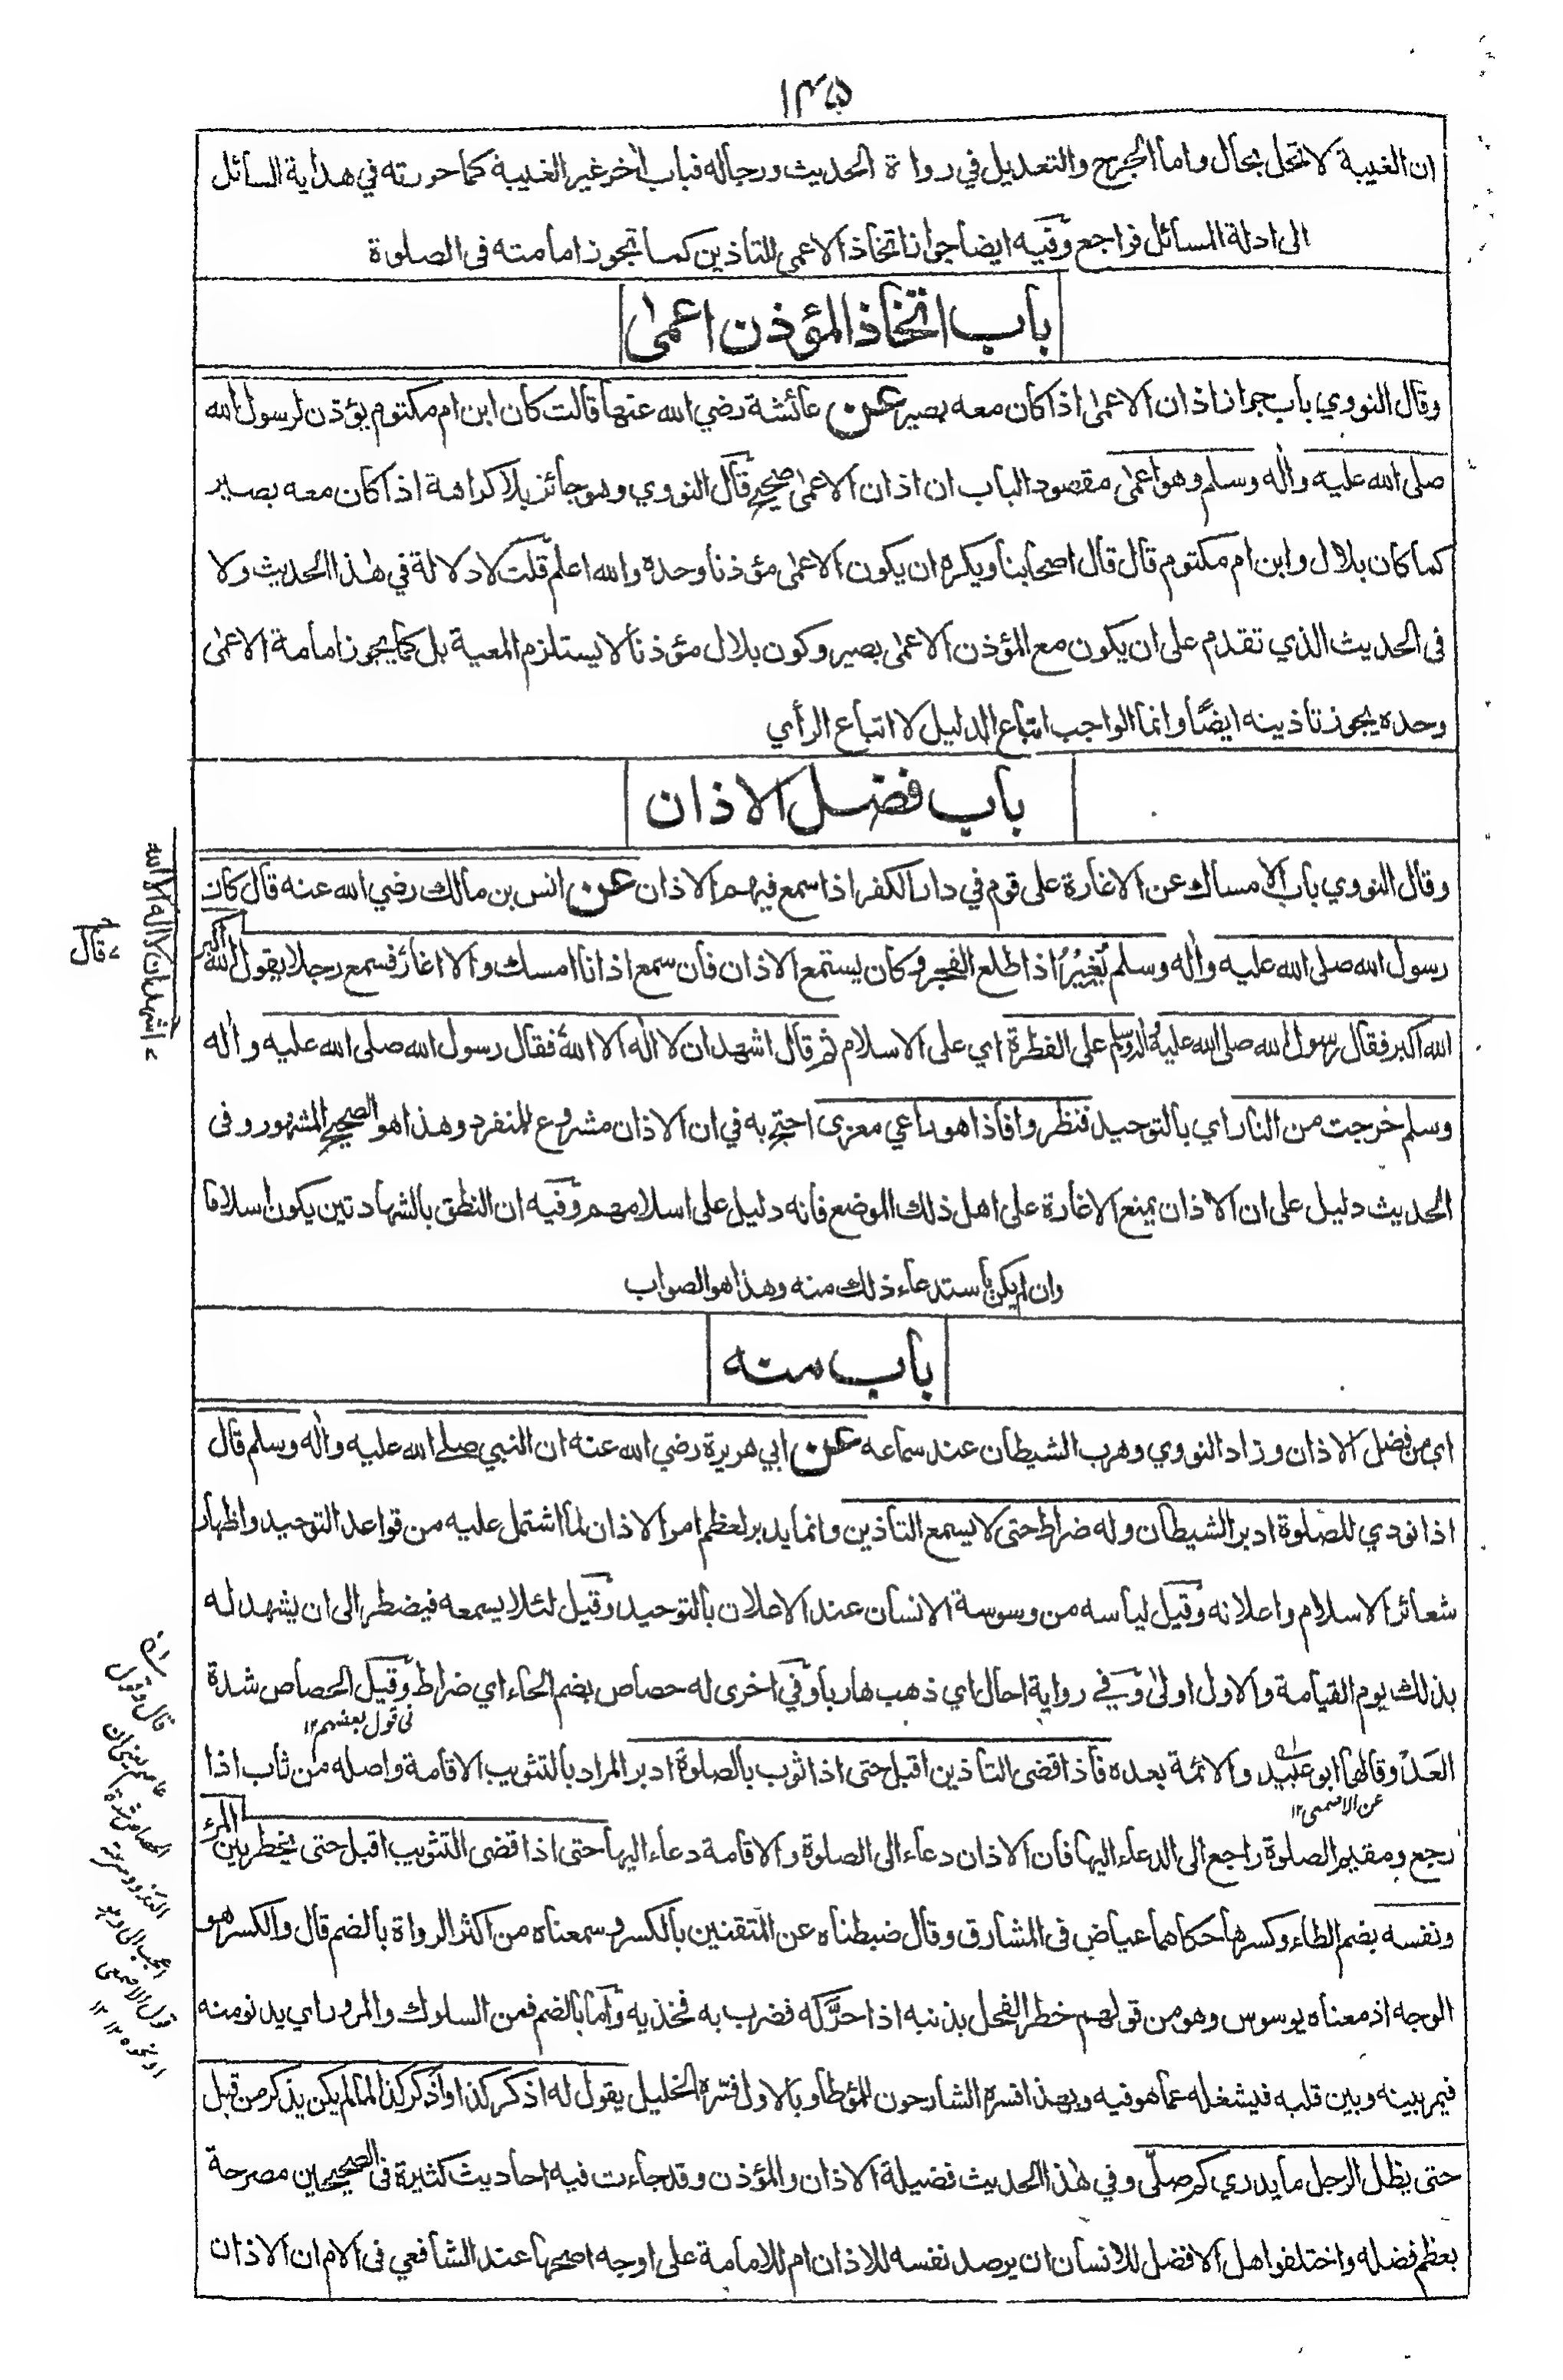 ۱۴۵
ان الغيبة لا تحل بحال واما الجرح والتعديل في رواة الحديث ورجاله فباب اخر غير الغيبة كما حررته في هداية السائل
الى ادلة المسائل فراجع وفيه ايضا جواز اتخاذ الاعمى للتاذين كما تجوز امامته فى الصلوة
باب اتخاذ المؤذن اعمى
وقال النووي باب جواز اذان الاعمى اذا كان معه بصير عن عائشة رضي الله عنها قالت كان ابن ام مكتوم يؤذن لرسول الله
صلى الله عليه واٰله وسلم وهو اعمى مقصود الباب ان اذان الاعمى صحيح قال النووي وهو جائز بلا كراهة اذا كان معه بصير
كما كان بلال وابن ام مكتوم قال قال اصحابنا ويكره ان يكون الاعمى مؤذنا وحده والله اعلم قلت لا دلالة في هٰذا الحديث ولا
فى الحديث الذي تقدم على ان يكون مع المؤذن الاعمى بصير وكون بلال مؤذنا لا يستلزم المعية بل كما يجوز امامة الاعمى
وحده يجوز تاذينه ايضًا وانما الواجب اتباع الدليل لا اتباع الرأي
باب فضل الاذان
وقال النووي باب الامساك عن الاغارة على قوم في دار الكفر اذا سمع فيهم الاذان عن انس بن مالك رضي الله عنه قال كان
رسول الله صلى الله عليه واٰله وسلم يُغِيْرُ اذا طلع الفجر وكان يستمع الاذان فان سمع اذانا امسك والا اغار فسمع رجلا يقول الله اكبر
الله اكبر فقال رسول الله صلى الله عليه واٰله وسلم على الفطرة اي على الاسلام ثم قال اشهد ان لا اله الا الله فقال رسول الله صلى الله عليه واٰله
وسلم خرجت من النار اي بالتوحيد فنظروا فاذا هو راعي معزى احتج به في ان الاذان مشروع للمنفرد وهذا هو الصحيح المشهور وفى
الحديث دليل على ان الاذان يمنع الاغارة على اهل ذلك الموضع فانه دليل على اسلامهم وفيه ان النطق بالشهادتين يكون اسلاما
وان لم يكن باستدعاء ذلك منه وهذا هو الصواب
ثم قال
اشهد ان لا اله الا الله
باب منه
اي من فضل الاذان وزاد النووي وهرب الشيطان عند سماعه عن ابي هريرة رضي الله عنه ان النبي صلى الله عليه واٰله وسلم قال
اذا نودي للصلوة ادبر الشيطان وله ضراط حتى لا يسمع التاذين وانما يدبر لعظم امر الاذان لما اشتمل عليه من قواعد التوحيد واظهار
شعائر الاسلام واعلانه وقيل لياسه من وسوسة الانسان عند الاعلان بالتوحيد وقيل لئلا يسمعه فيضطر الى ان يشهد له
بذلك يوم القيامة والاول اولى وفي رواية احال اي ذهب هاربا وفي اخرى له حصاص بضم الحاء اي ضراط وقيل الحصاص شدة
فى قول بعضهم ١٢
العَدْ وقالها ابو عبيد والائمة بعده فاذا قضى التأذين اقبل حتى اذا ثوب بالصلوة ادبر المراد بالتثويب الاقامة واصله من ثاب اذا
عن الاصمعى ١٢
رجع ومقيم الصلوة راجع الى الدعاء اليها فان الاذان دعاء الى الصلوة والاقامة دعاء اليها حتى اذا قضى التثويب اقبل حتى يخطر بين المرء
ونفسه بضم الطاء وكسرها حكاهما عياض فى المشارق وقال ضبطناه عن المتقنين بالكسر وسمعناه من اكثر الرواة بالضم قال والكسر هو
الوجه اذ معناه يوسوس وهو من قولهم خطر الفحل بذنبه اذا حرّكه فضرب به فخذيه واما بالضم فمن السلوك والمرور اي يدنو منه
فيمر بينه وبين قلبه فيشغله عما هو فيه وبهذا فسره الشارحون للمؤطا وبالاول فسّره الخليل يقول له اذكر كذا واذكر كذا لما لم يكن يذكر من قبل
حتى يظل الرجل ما يدري كم صلّى وفي هٰذا الحديث فضيلة الاذان والمؤذن وقد جاءت فيه احاديث كثيرة فى الصحيحين مصرحة
بعظم فضله واختلفوا هل الافضل للانسان ان يرصد نفسه للاذان ام للامامة على اوجه اصحها عند الشافعي فى الام ان الاذان
قول الاصمعى
او نحوه ١٢